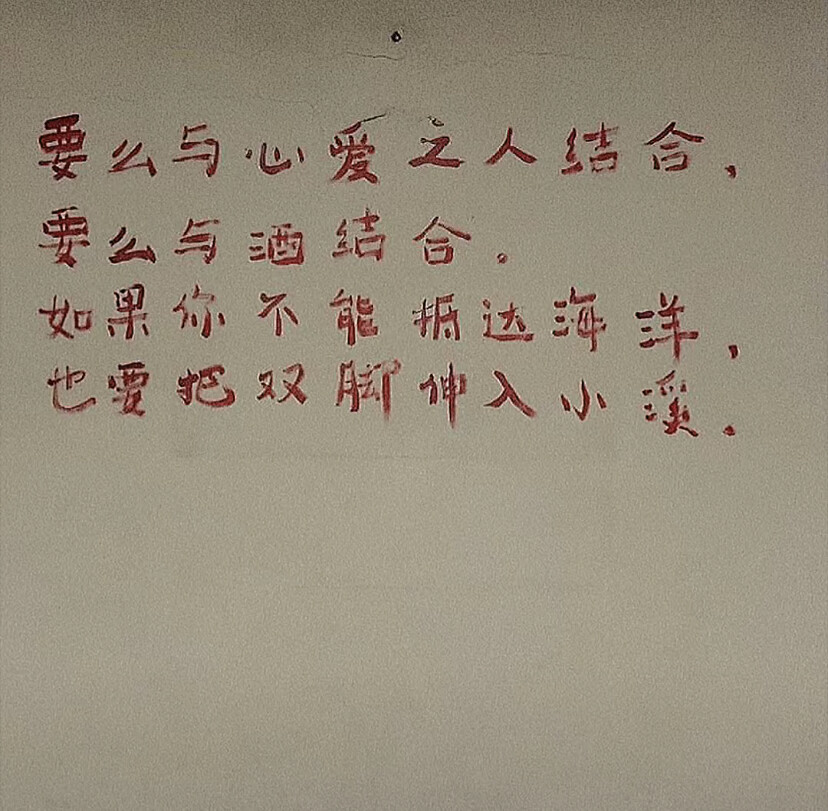 要么与心爱之人结合，
要么与酒结合。
如果你不能抵达海洋，
也要把双脚伸入小溪.